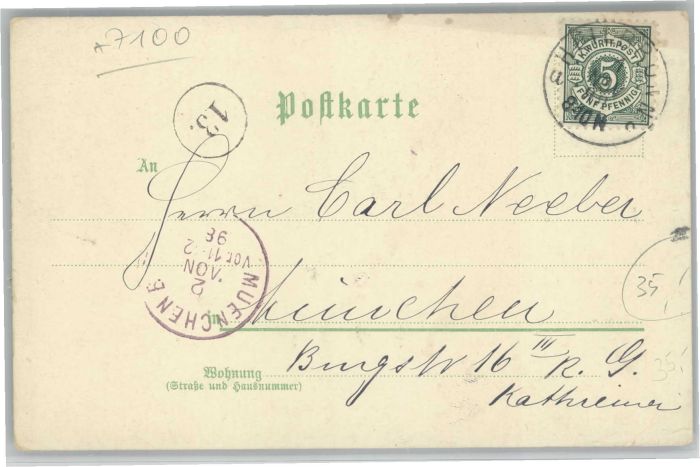 7100
K.WÜRTT.POST
5
FÜNF PFENNIG
8-10N
13.
Postkarte
An
Herrn Carl Neeber
MUENCHEN
2
NOV.
VOR.11-12
98
in München
Burgstr 16 III R. G.
Wohnung
(Straße und Hausnummer)
Kathreiner
35,!
35!